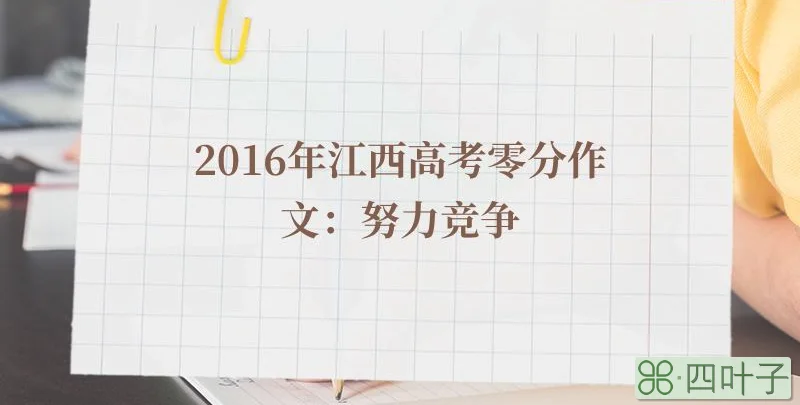 2016年江西高考零分作
文：努力竞争
四叶子